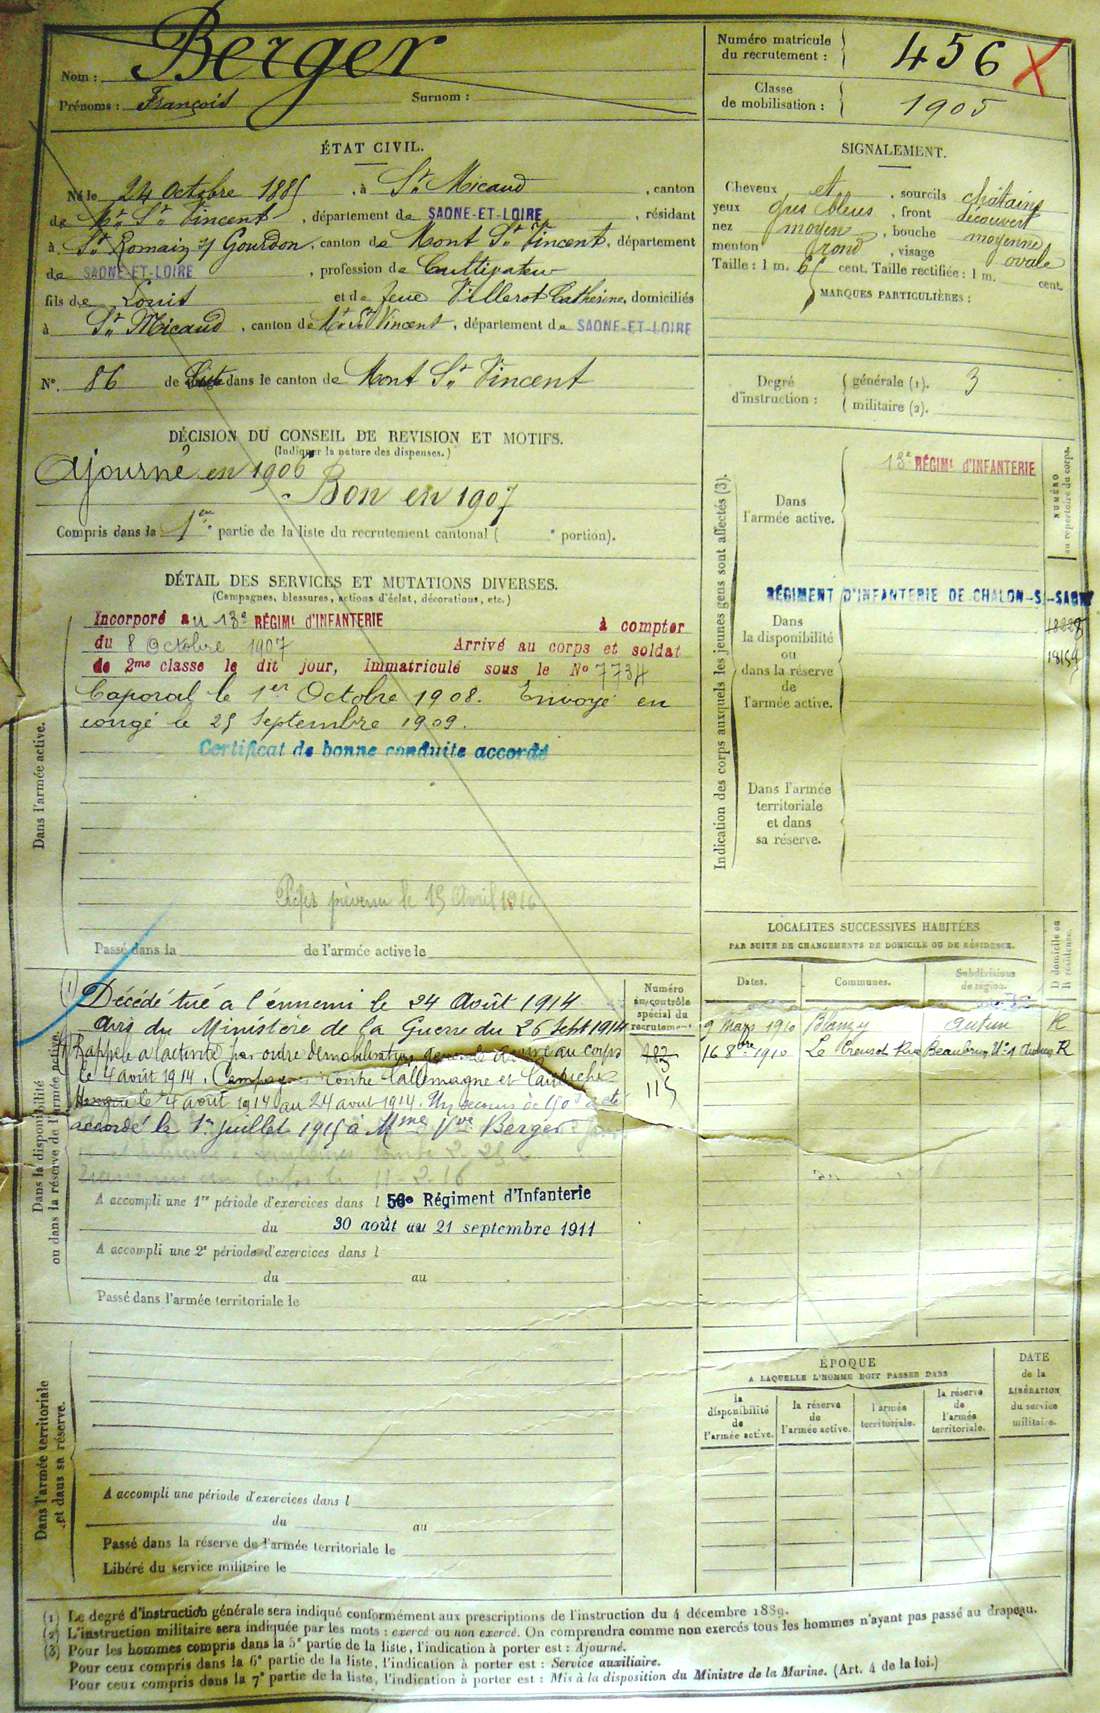 Nom : Berger
Prénoms : François Surnom :
Numéro matricule du recrutement : 456 X
Classe de mobilisation : 1905
ÉTAT CIVIL.
Né le 24 Octobre 1885, à St Micaud, canton
de Mt St Vincent, département de SAONE-ET-LOIRE, résidant
à St Romain s/ Gourdon, canton de Mont St Vincent, département
de SAONE-ET-LOIRE, profession de Cultivateur
fils de Louis et de feue Villerot Catherine, domiciliés
à St Micaud, canton de Mt St Vincent, département de SAONE-ET-LOIRE
N° 86 de dans le canton de Mont St Vincent
SIGNALEMENT.
Cheveux et, sourcils châtains
yeux gris bleus, front découvert
nez moyen, bouche moyenne
menton rond, visage ovale
Taille : 1 m. 65 cent. Taille rectifiée : 1 m. cent.
MARQUES PARTICULIÈRES :
Degré d'instruction : générale (1). 3
militaire (2).
DÉCISION DU CONSEIL DE REVISION ET MOTIFS.
(Indiquer la nature des dispenses.)
Ajourné en 1906
Bon en 1907
Compris dans la 1ère partie de la liste du recrutement cantonal ( e portion).
DÉTAIL DES SERVICES ET MUTATIONS DIVERSES.
(Campagnes, blessures, actions d'éclat, décorations, etc.)
Dans l'armée active.
Incorporé au 13e RÉGIMt d'INFANTERIE à compter
du 8 Octobre 1907 Arrivé au corps et soldat
de 2me classe le dit jour, Immatriculé sous le No 7734
Caporal le 1er Octobre 1908. Envoyé en
congé le 25 Septembre 1909.
Certificat de bonne conduite accordé
prévenu le 15 Avril 1916
Passé dans la de l'armée active le
Indication des corps auxquels les jeunes gens sont affectés (3).
NUMÉRO au répertoire du corps.
Dans l'armée active.
13e RÉGIMt d'INFANTERIE
RÉGIMENT D'INFANTERIE DE CHALON-S-SAONE
Dans la disponibilité ou dans la réserve de l'armée active.
18154
Dans l'armée territoriale et dans sa réserve.
LOCALITÉS SUCCESSIVES HABITÉES
PAR SUITE DE CHANGEMENTS DE DOMICILE OU DE RÉSIDENCE.
Dates. Communes. Subdivisions de région. D domicile ou R résidence.
9 Mars 1910 Blanzy Autun R
16 8bre 1910 Le Creusot Rue Beaubrun No 1 Autun R
Dans la disponibilité ou dans la réserve de l'armée active
Numéro au contrôle spécial du recrutement
183
115
Décédé tué a l'ennemi le 24 Août 1914
avis du Ministère de la Guerre du 26 Sept 1914
Rappelé a l'activité par ordre de mobilisation générale arrivé au corps
le 4 août 1914. Campagne contre l'allemagne et l'autriche
Hongrie le 4 août 1914 au 24 août 1914. Un secours de 150 f a été
accordé le 1er juillet 1915 à Mme Vve Berger
11-2-16
A accompli une 1re période d'exercices dans l 56e Régiment d'Infanterie
du 30 août au 21 septembre 1911
A accompli une 2e période d'exercices dans l
du au
Passé dans l'armée territoriale le
Dans l'armée territoriale et dans sa réserve.
A accompli une période d'exercices dans l
du au
Passé dans la réserve de l'armée territoriale le
Libéré du service militaire le
ÉPOQUE
A LAQUELLE L'HOMME DOIT PASSER DANS
la disponibilité de l'armée active.
la réserve de l'armée active.
l'armée territoriale.
la réserve de l'armée territoriale.
DATE de la LIBÉRATION du service militaire.
(1) Le degré d'instruction générale sera indiqué conformément aux prescriptions de l'instruction du 4 décembre 1889.
(2) L'instruction militaire sera indiquée par les mots : exercé ou non exercé. On comprendra comme non exercés tous les hommes n'ayant pas passé au drapeau.
(3) Pour les hommes compris dans la 5e partie de la liste, l'indication à porter est : Ajourné.
Pour ceux compris dans la 6e partie de la liste, l'indication à porter est : Service auxiliaire.
Pour ceux compris dans la 7e partie de la liste, l'indication à porter est : Mis à la disposition du Ministre de la Marine. (Art. 4 de la loi.)